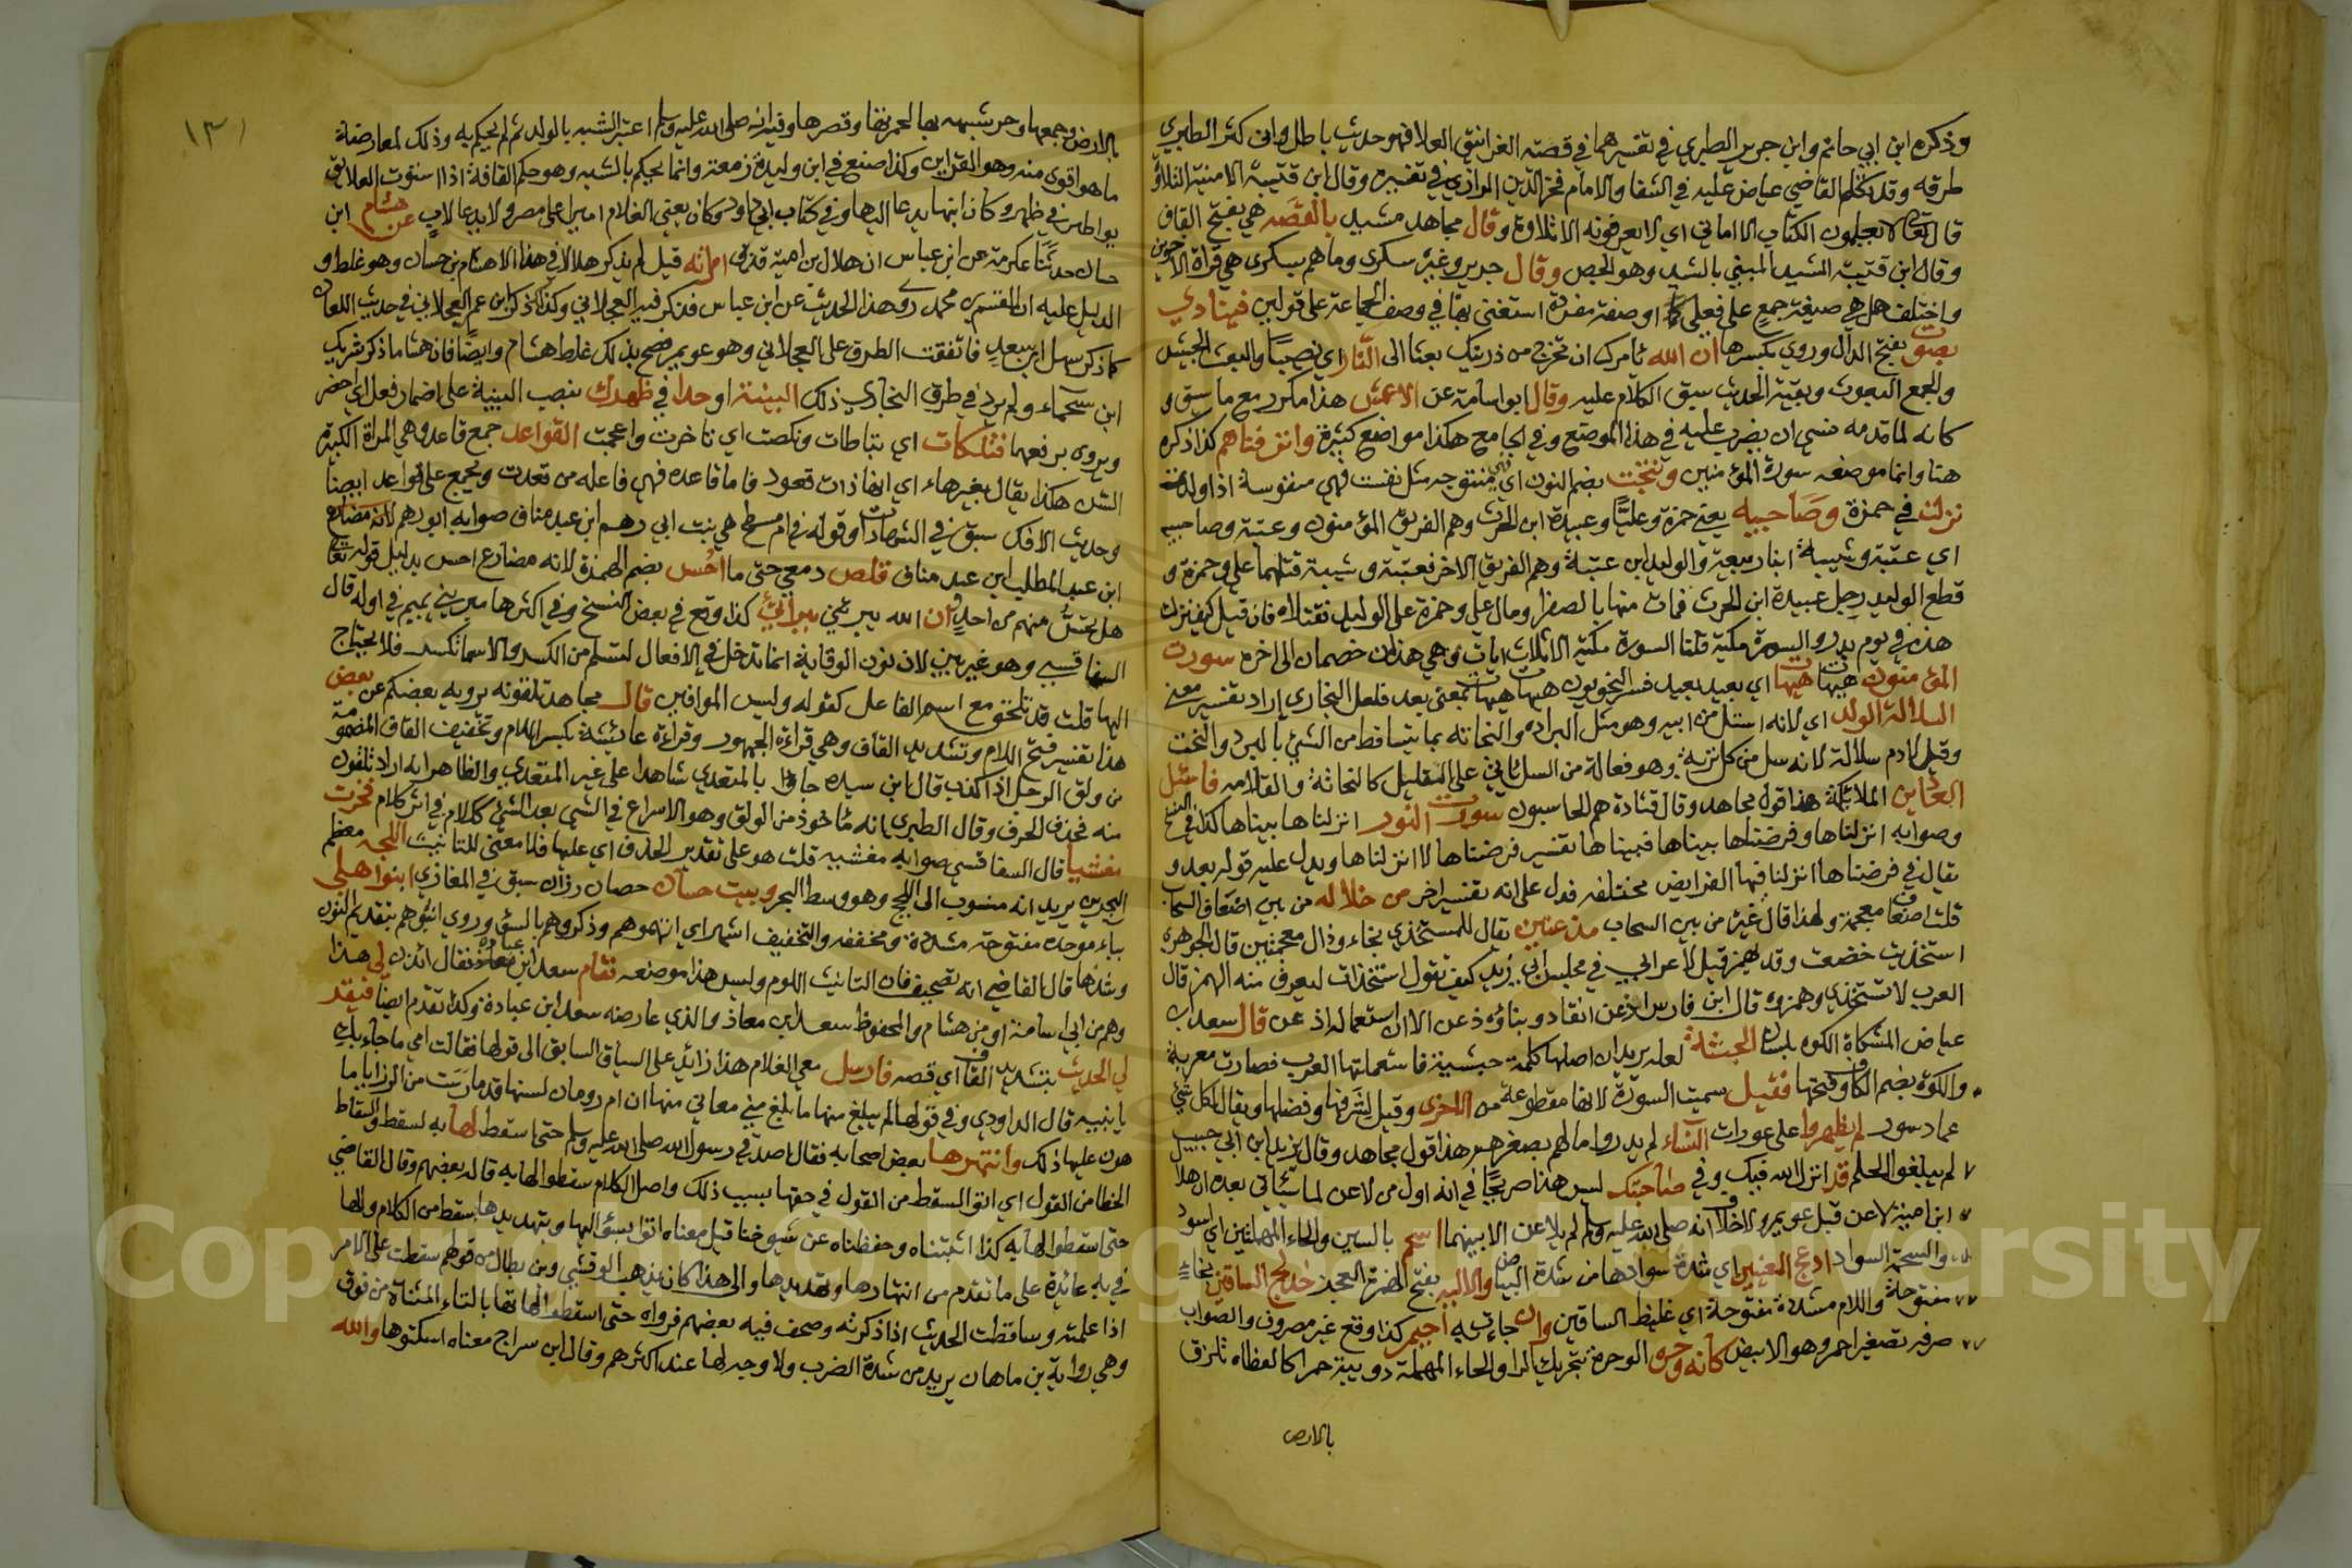 وذكره ابن ابي حاتم وابن جرير الطبري في تفسيرهما في قصة الغرانيق العلا فهو حديث باطل وان كثر الطبري
طرقه وقد تكلم القاضي عياض عليه في الشفا والامام فخر الدين الرازي في تفسيره وقال ابن قتيبة الامنية التلاوة
قال تعالى لا يعلمون الكتاب الا اماني اي لا يعرفونه الا تلاوة وقال مجاهد مشيد بالقصه هي بفتح القاف
وقال ابن قتيبة المشيد المبني بالشيد وهو الجص وقال جرير وغيره سكرى وما هم بسكرى هي قراة الاخوين
واختلف هل هي صيغة جمع على فعلى او صفة مفردة استغنى بها في وصف الجماعة على قولين فينادي
بصوت بفتح الدال وروي بكسرها ان الله يامرك ان تخرج من ذريتك بعثا الى النار اي نصيبا والبعث الجيش
والجمع البعوث وبقية الحديث سبق الكلام عليه وقال ابو اسامة عن الاعمش هذا مكرر مع ما سبق و
كانه لما قدمه نسي ان يضرب عليه في هذا الموضع وفي الجامع هكذا مواضع كثيرة واترفناهم كذا ذكره
هنا وانما موضعه سورة المؤمنين ونتجت بضم النون اي فهي منتوجه مثل نفست فهي منفوسة اذا ولدت
نزلت في حمزة وصاحبيه يعني حمزة وعليا وعبيدة ابن الحرث وهم الفريق المؤمنون وعتبة وصاحبيه
اي عتبة وشيبة ابنا ربيعة والوليد ابن عتبة وهم الفريق الاخر فعتبة وشيبة قتلهما علي وحمزة و
قطع الوليد رجل عبيدة ابن الحرث فمات منها بالصفرا ومال علي وحمزة على الوليد فقتلاه فان قيل كيف نزلت
هذه في يوم بدر والسورة مكية قلنا السورة مكية الا ثلاث ايات وهي هذان خصمان الى اخره سورت
المؤمنون هيهات هيهات اي بعيد بعيد فسر النحويون هيهات هيهات بمعنى بعد فلعل البخاري اراد تفسير معنى
السلالة الولد اي لانه استل من ابيه وهو مثل البراده والنحاته بما يتساقط من الشيئ بالبرد والنحت
وقيل لادم سلالة لانه سل من كل تربة وهو فعالة من السل ياتي على التقليل كالنحاتة والقلامه فاسئل
العادين الملائكة هذا قول مجاهد وقال قتادة هم الحاسبون سورت النور انزلناها بيناها كذا في النسخ
وصوابه انزلناها وفرضناها بيناها فبيناها تفسير فرضناها لا انزلناها ويدل عليه قوله بعد و
يقال في فرضناها انزلنا فيها الفرايض مختلفه فدل على انه تفسير اخر من خلاله من بين اضعاف السحاب
قلت اضعاف معجمة ولهذا قال غيره من بين السحاب مذعنين يقال للمستخذي بخاء وذال معجمتين قال الجوهري
استخذيت خضعت وقد يهمز قيل لاعرابي في مجلس ابي زيد كيف تقول استخذات ليعرف منه الهمز قال
العرب لا تستخذي وهمزه قال ابن فارس اذعن انقاد وبناؤه ذعن الا ان استعماله اذعن قال سعد ابن
عياض المشكاة الكوه بلسان الحبشة لعله يريد ان اصلها كلمة حبشية فاستعملتها العرب فصارت معربة
والكوة بضم الكاف وفتحها فقيل سميت السورة لانها مقطوعة من الاخرى وقيل لشرفها وفضلها ويقال لكل شئ
عماد سور لم يظهروا على عورات النساء لم يدروا ما لهم بصغرهم هذا قول مجاهد وقال يزيد ابن ابي حبيب
لم يبلغوا الحلم قد انزل الله فيك وفي صاحبتك ليس هذا صريحا في انه اول من لاعن لما سيأتي بعده ان هلال
ابن امية لاعن قبل عويمر ولا خلاف انه صلى الله عليه وسلم لم يلاعن الا بينهما اسحم بالسين والحاء المهملتين اي اسود
والسحمة السواد ادعج العينين اي شدة سوادها من شدة البياض والاليه بفتح الهمزة العجيز خدلج الساقين بخاء
مفتوحة واللام مشددة مفتوحة اي غليظ الساقين وان جاءت به احيمر كذا وقع غير مصروف والصواب
صرفه تصغير احمر وهو الابيض كانه وحره الوحرة بتحريك الرا والحاء المهملة دويبة حمرا كالعظاه تلزق
بالارض
١٣١
بالارض وجمعها وحر شبهه بها لحمرتها وقصرها وفيه انه صلى الله عليه وسلم اعتبر الشبه بالولد ثم لم يحكم به وذلك لمعارضة
ما هو اقوى منه وهو الفراش وكذا صنع في ابن وليدة زمعة وانما يحكم بالشبه وهو حكم القافة اذا استوت العلايق
بواطن في ظهر وكان ابنها يدعا اليها وفي كتاب ابي داود وكان يعني الغلام اميرا على مصر ولا يدعا لاب عن هشام ابن
حسان حدثنا عكرمة عن ابن عباس ان هلال بن امية قذف امراته قيل لم يذكر هلالا في هذا الا هشام بن حسان وهو غلط و
الدليل عليه ان القسم بن محمد روى هذا الحديث عن ابن عباس فذكر فيه العجلاني وكذا ذكر ابن عمر العجلاني في حديث اللعان
كما ذكر سهل ابن سعد فاتفقت الطرق على العجلاني وهو عويمر فصح بذلك غلط هشام وايضا فان هشاما ذكر شريك
ابن سحماء ولم يرد في طرق البخاري ذلك البينة او حدا في ظهرك بنصب البينة على اضمار فعل اي حضر
ويروى برفعها فتلكات اي تباطات ونكصت اي تاخرت واعجمت القواعد جمع قاعد وهي المراة الكبيرة
الشن هكذا يقال بغير هاء اي انها ذات قعود فاما قاعدة فهي فاعله من قعدت وتجمع على قواعد ايضا
وحديث الافك سبق في الشهادات وقوله في ام مسطح هي بنت ابي رهم ابن عبد مناف صوابه ابو رهم
ابن عبد المطلب ابن عبد مناف قلص دمعي حتى ما احس بضم الهمزة لانه مضارع احس بدليل قوله تعالى
هل تحس منهم من احد وان الله يبرئني ببرائتي كذا وقع في بعض النسخ وفي اكثرها مبرئني بميم في اوله قال
السفاقسي وهو غير بين لان نون الوقاية انما تدخل في الافعال لتسلم من الكسر والاسما تكسر فلا يحتاج
اليها قلت قد تلحق مع اسم الفاعل كقوله وليس الموافيني قال مجاهد تلقونه يرويه بعضكم عن بعض
هذا تفسير فتح اللام وتشديد القاف وهي قراءة الجمهور وقراءة عائشة بكسر اللام وتخفيف القاف المضمومة
من ولق الرجل اذا كذب قال ابن سيده جاوا بالمتعدي شاهدا على غير المتعدي والظاهر انه اراد تلقون
منه فحذف الحرف وقال الطبري انه ماخوذ من الولق وهو الاسراع في الشيئ بعد الشيئ ككلام في اثر كلام فخرت
مغشيا قال السفاقسي صوابه مغشيه قلت هو على تقدير الحذف اي عليها فلا معنى للتانيث اللجه معظم
البحر يريد انه منسوب الى اللج وهو وسط البحر وبيت حسان حصان رزان سبق في المغازي ابنوا اهلي
بباء موحدة مفتوحة مشددة ومخففه والتخفيف اشهر اي اتهموهم وذكروهم بالسؤ وروي انبوهم بتقديم النون
وشدها قال القاضي انه تصحيف فان التانيب اللوم وليس هذا موضعه فقام سعد ابن عبادة فقال ائذن لي هذا
وهم من ابي اسامة او من هشام والمحفوظ سعد ابن معاذ والذي عارضه سعد ابن عبادة وكذا تقدم ايضا فبقر
لي الحديث بتشديد القاف اي قصه فارسل معي الغلام هذا زائد على السياق السابق الى قولها فقالت امي ما جاء بك
يا بنيه قال الداودي وفي قولها لم يبلغ منها ما بلغ مني معاني منها ان ام رومان لسنها قد مارست من الرزايا ما
هون عليها ذلك وانتهرها بعض اصحابه فقال اصدقي رسول الله صلى الله عليه وسلم حتى اسقطوا لها به السقط والسقاط
الخطا من القول اي اتوا السقط من القول في حقها بسبب ذلك واصل الكلام سقطوا لها به قاله بعضهم وقال القاضي
حتى اسقطوا لها به كذا اثبتناه وحفظناه عن شيوخنا قيل معناه اتوا بسؤ اليها وبتهديدها بسقط من الكلام والها
في به عائدة على ما تقدم من انتهارها وتهديدها والى هذا كان يذهب الوقشي وبن بطال من قولهم سقطت على الامر
اذا علمته وساقطت الحديث اذا ذكرته وصحف فيه بعضهم فرواه حتى اسقطوا لهاتها بالتاء المثناة من فوق
وهي رواية بن ماهان يريد من شدة الضرب ولا وجه لها عند اكثرهم وقال ابن سراج معناه اسكتوها والله
Copyright © King Saud University